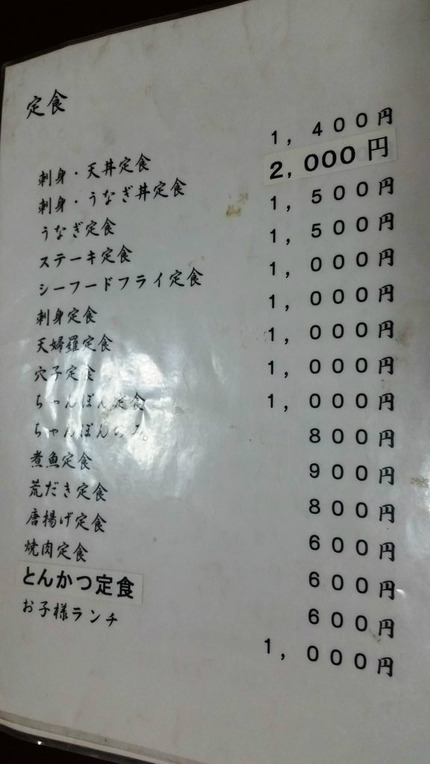 定食
刺身・天丼定食 1,400円
刺身・うなぎ丼定食 2,000円
うなぎ定食 1,500円
ステーキ定食 1,500円
シーフードフライ定食 1,000円
刺身定食 1,000円
天婦羅定食 1,000円
穴子定食 1,000円
ちゃんぽん定食 1,000円
ちゃんぽん 800円
煮魚定食 900円
荒だき定食 800円
唐揚げ定食 600円
焼肉定食 600円
とんかつ定食 600円
お子様ランチ 1,000円